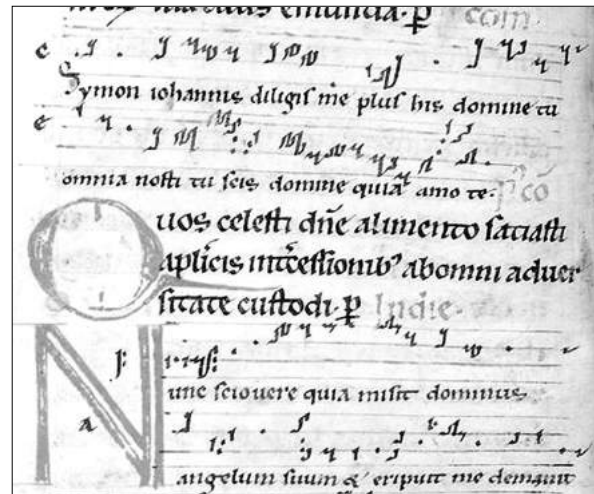 com
Symon iohannis diligis me plus his domine tu
omnia nosti tu scis domine quia amo te· cō
Quos celesti dn̄e alimento saciasti
apl̄icis int̄cessionibꝰ abomni aduer
sitate custodi·ꝑ Indie·
Nunc scio uere quia misit dominus
angelum suum & eripuit me demanu